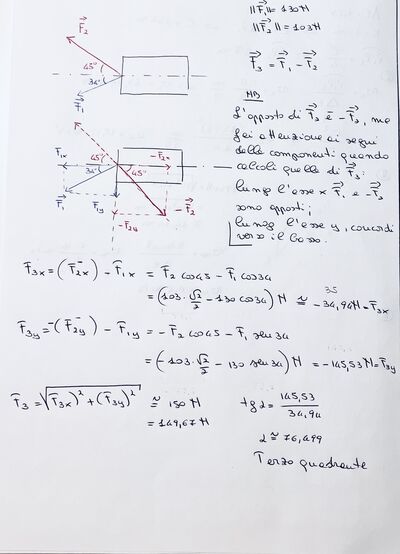 ||F⃗₁|| = 130 N
||F⃗₂|| = 103 N
F⃗₃ = F⃗₁ - F⃗₂
F⃗₂
45°
34°
F⃗₁
NB
L'opposto di F⃗₂ è -F⃗₂, ma
fai attenzione ai segni
delle componenti quando
calcoli quelle di F⃗₃:
lungo l'asse x F⃗₁ e -F⃗₂
sono opposti;
lungo l'asse y, concordi
verso il basso.
F₁ₓ 45° -F₂ₓ
34° 45°
F⃗₁ F₁y -F⃗₂
-F₂y
F₃ₓ = (F₂ₓ) - F₁ₓ = F₂ cos45 - F₁ cos34
= (103·√2/2 - 130 cos34) N ≅ -34,94N = F₃ₓ
35
F₃y = -(F₂y) - F₁y = -F₂ cos45 - F₁ sen34
= (-103·√2/2 - 130 sen34) N = -145,53N = F₃y
F₃ = √(F₃ₓ)² + (F₃y)² ≅ 150 N tgα = 145,53/34,94
= 149,67 N
α ≅ 76,499
Terzo quadrante